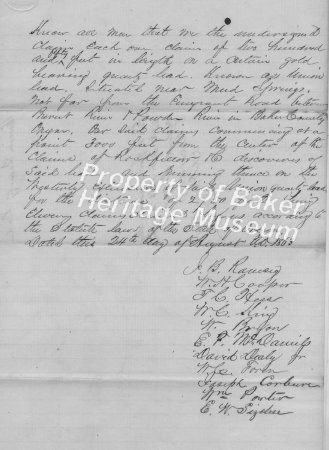 Know all men that we the undersigned
claim each one claim of two hundred
and fifty feet in length on a certain gold
bearing quartz lead. Known as Union
lead, Situated near Mud Springs,
Not far from the Emigrant Road between
Burnt River & Powder River in Baker County
Oregon. Our said claims commencing at a
point 3000 feet from the Center of the
Claims of Rockfellow & Co discoverers of
Said lead and running thence on the
Westerly quartz lead
for the
Eleven Claims according to
the Statute laws of the State of
Dated this 24th day of August AD 1863
Property of Baker
Heritage Museum
J. B. Ramsey
W. H. Cooper
F. C. Hess
W. C. King
W.
E. P. McDaniels
David Dealy Jr
W. C.
Joseph Corbure
Wm Porter
E. W.